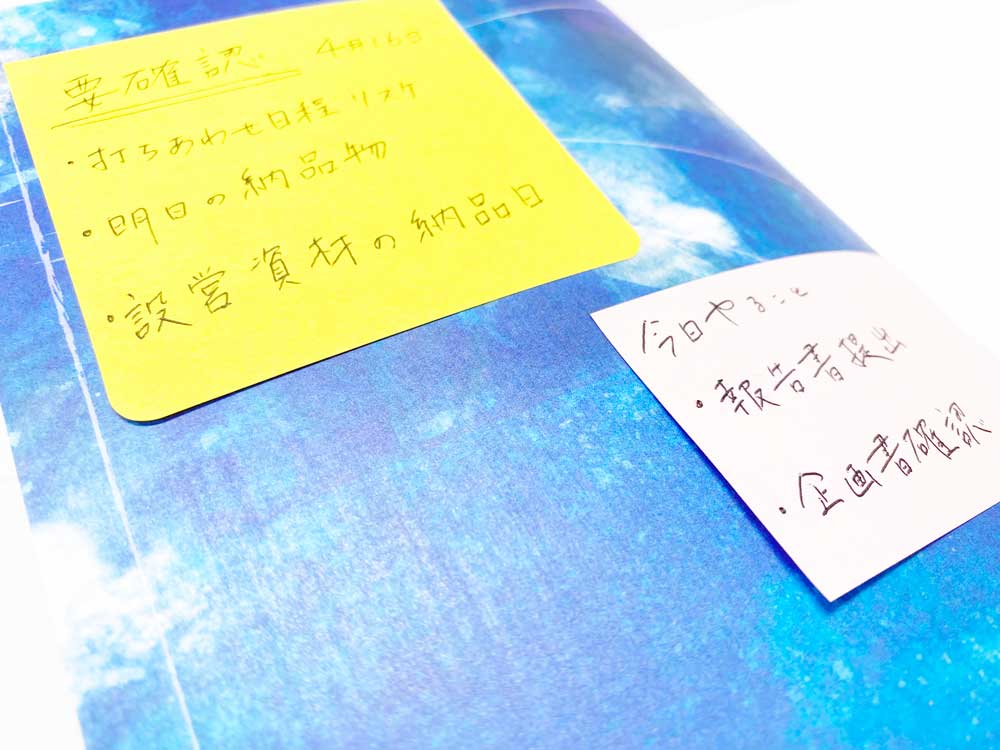 要確認 4月16日
・打ちあわせ日程 リスケ
・明日の納品物
・設営資材の納品日
今日やること
・報告書提出
・企画書確認